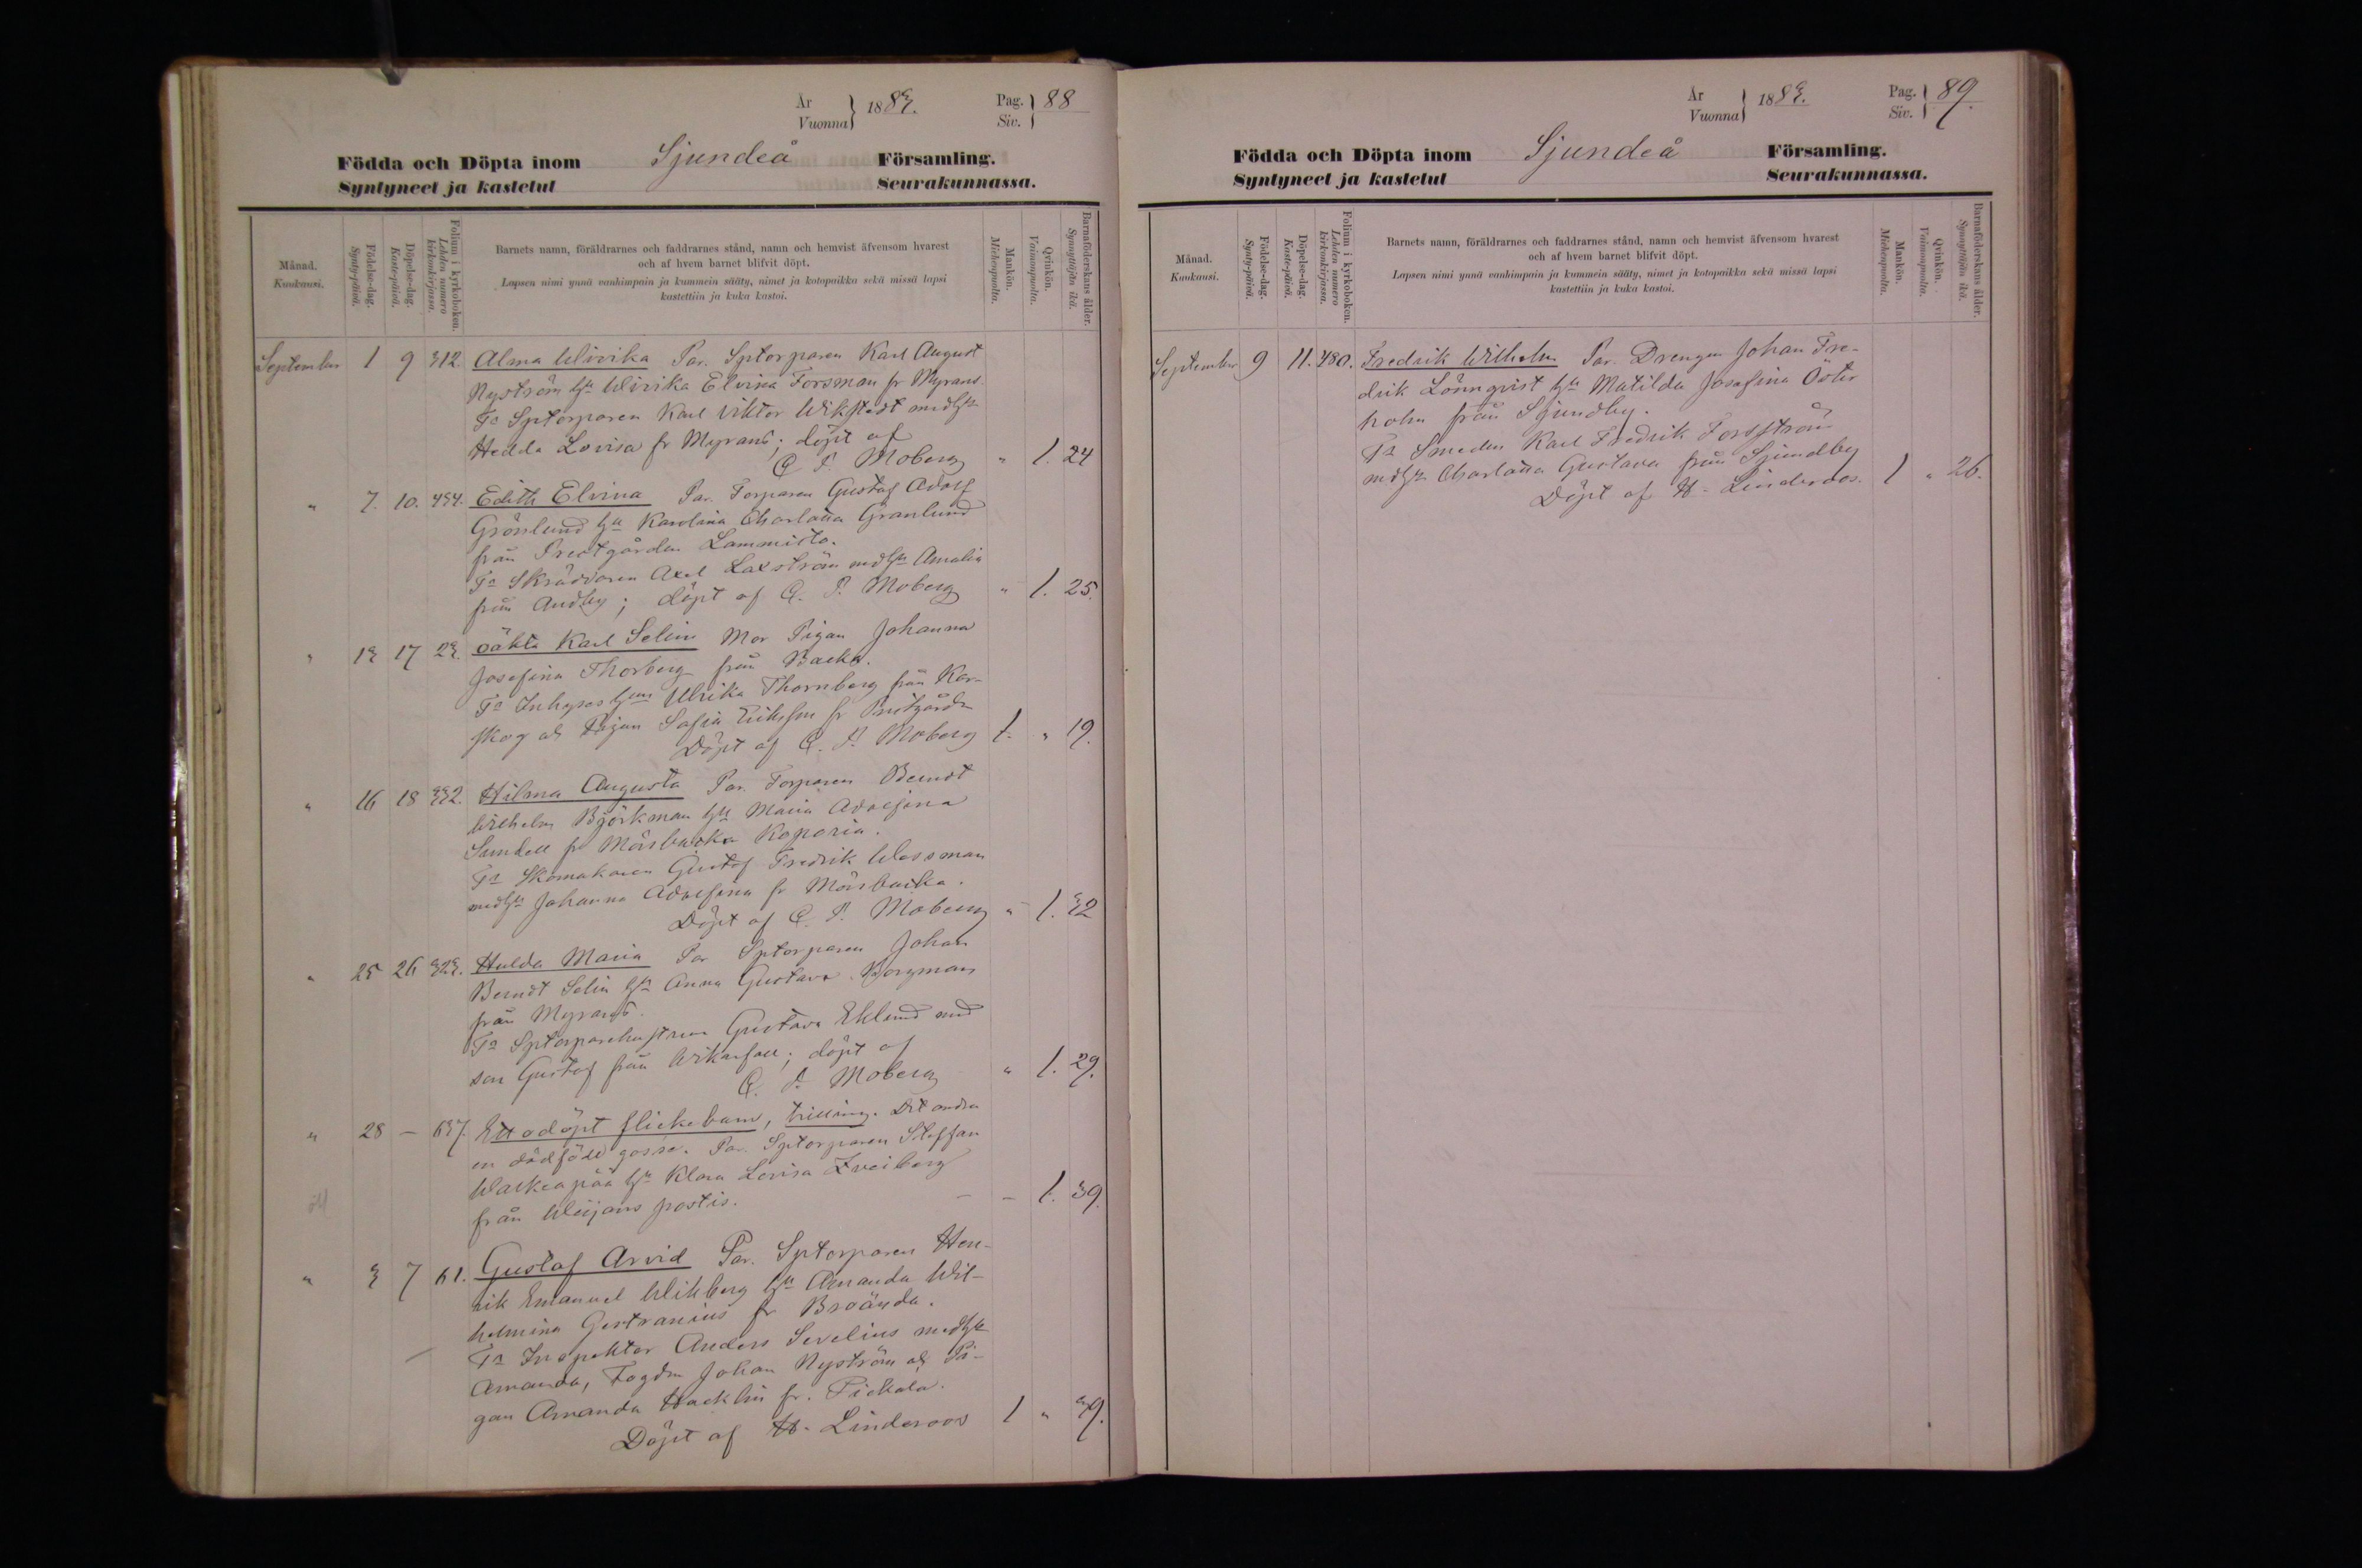 År
Vuonna
1883.
Pag.
Siv.
88
Födda och Döpta inom Sjundeå Församling.
Syntyneet ja kastetut Seurakunnassa.
Månad.
Kuukausi.
Födelse-dag.
Synty-päivä.
Döpelse-dag.
Kaste-päivä.
Folium i kyrkoboken.
Lehden numero
kirkonkirjassa.
Barnets namn, föräldrarnes och faddrarnes stånd, namn och hemvist äfvensom hvarest
och af hvem barnet blifvit döpt.
Lapsen nimi ynnä vanhimpain ja kummein sääty, nimet ja kotopaikka sekä missä lapsi
kastettiin ja kuka kastoi.
Mankön.
Miehenpuolta.
Qvinkön.
Vaimonpuolta.
Barnaföderskans ålder.
Synnyttäjän ikä.
September 1 9 312 Alma Ulrika Par. Sptorparen Karl August
Nyström hu Ulrika Elvina Forsman fr Myrans.
Fa Sptorparen Karl Viktor Wikstedt med hu
Hedda Lovisa fr Myrans; döpt af
C P. Moberg " 1. 24
" 7. 10. 494. Edith Elvina Par. Torparen Gustaf Adolf
Grönlund hu Karolina Charlotta Granlund
från Prestgården Lammisto.
Fa Skräddaren Axel Laxström med hu Amalia
från Andby; döpt af C. P. Moberg " 1. 25.
" 13 17 23. oäkta Karl Selim Mor Pigan Johanna
Josefina Thorberg från Backa.
Fa Inhyses Ulrika Thornberg från Kar-
skog och Pigan Sofia Eriksson fr Prestgårdn
Döpt af C. P. Moberg 1. " 19.
" 16 18 332. Hilma Augusta Par. Torparen Berndt
Wilhelm Björkman hu Maria Adolfina
Sundell fr Mörsbacka Koporia.
Fa Skomakaren Gustaf Fredrik Wessman
med hu Johanna Adolfina fr Mörsbacka.
Döpt af C. P. Moberg " 1. 32
" 25 26 323. Hulda Maria Par Sptorparen Johan
Berndt Selin hu Anna Gustava Borgman
från Myrans.
Fa Sptorparehustrun Gustava Eklund med
son Gustaf från; döpt af
C. P. Moberg " 1. 29.
" 28 – 637. Ett odöpt flickebarn, trilling. Det andra
en dödfödd gosse. Par. Sptorparen Staffan
Walkeapää hu Klara Lovisa Zweiberg
från postis. – – 1. 39.
" 3 7 61. Gustaf Arvid Par. Sptorparen Hen-
rik Emanuel Wikberg hu Amanda Wil-
helmina Gertranius fr Broända.
Fa Inspektor Anders Sevelius med hu
Amanda, Fogdn Johan Nyström och Pi-
gan Amanda Hacklin fr. Pickala.
Döpt af H. Linderoos 1 " 39.
År
Vuonna
1883.
Pag.
Siv.
89.
Födda och Döpta inom Sjundeå Församling.
Syntyneet ja kastetut Seurakunnassa.
Månad.
Kuukausi.
Födelse-dag.
Synty-päivä.
Döpelse-dag.
Kaste-päivä.
Folium i kyrkoboken.
Lehden numero
kirkonkirjassa.
Barnets namn, föräldrarnes och faddrarnes stånd, namn och hemvist äfvensom hvarest
och af hvem barnet blifvit döpt.
Lapsen nimi ynnä vanhimpain ja kummein sääty, nimet ja kotopaikka sekä missä lapsi
kastettiin ja kuka kastoi.
Mankön.
Miehenpuolta.
Qvinkön.
Vaimonpuolta.
Barnaföderskans ålder.
Synnyttäjän ikä.
September 9 11. 480. Fredrik Wilhelm Par. Drengen Johan Fre-
drik Lönnqvist hu Matilda Josefina Öster
holm från Sjundby.
Fa Smeden Karl Fredrik Forsström
med hu Charlotta Gustava från Sjundby
Döpt af H. Linderoos. 1 " 26.